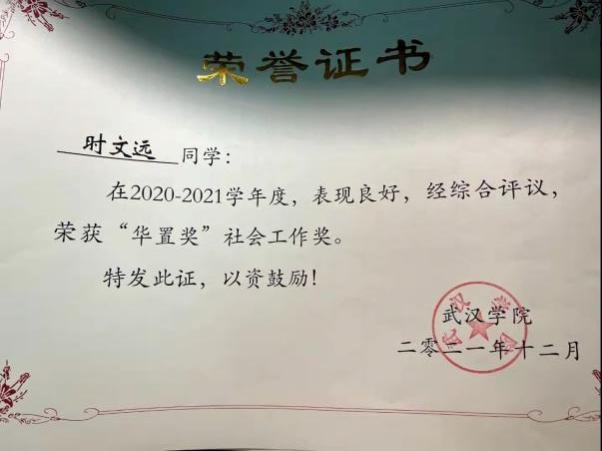 荣誉证书
时文远 同学：
在2020-2021学年度，表现良好，经综合评议，
荣获“华置奖”社会工作奖。
特发此证，以资鼓励！
武汉学院
二零二一年十二月